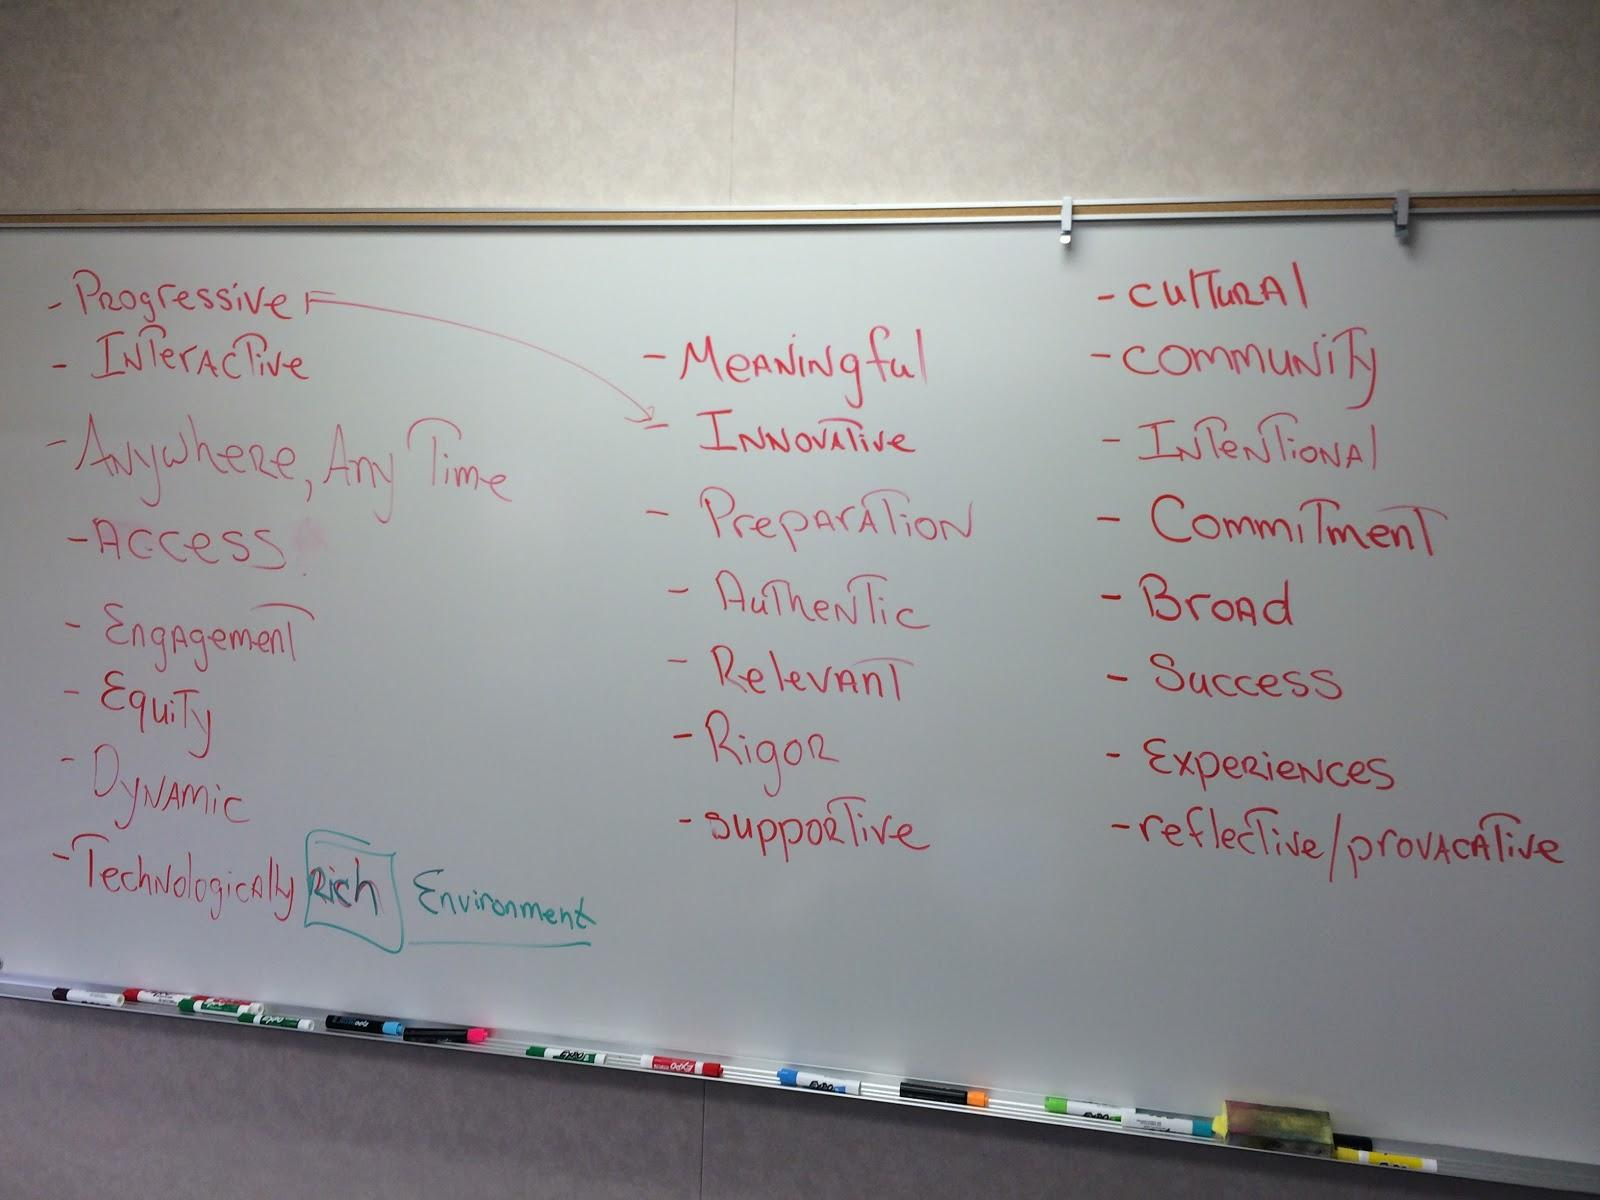 - Progressive
- Interactive
- Anywhere, Any Time
- Access
- Engagement
- Equity
- Dynamic
- Technologically Rich Environment
- Meaningful
- Innovative
- Preparation
- Authentic
- Relevant
- Rigor
- supportive
- cultural
- community
- Intentional
- Commitment
- Broad
- Success
- Experiences
- reflective/provacative
EXPO
EXPO
EXPO